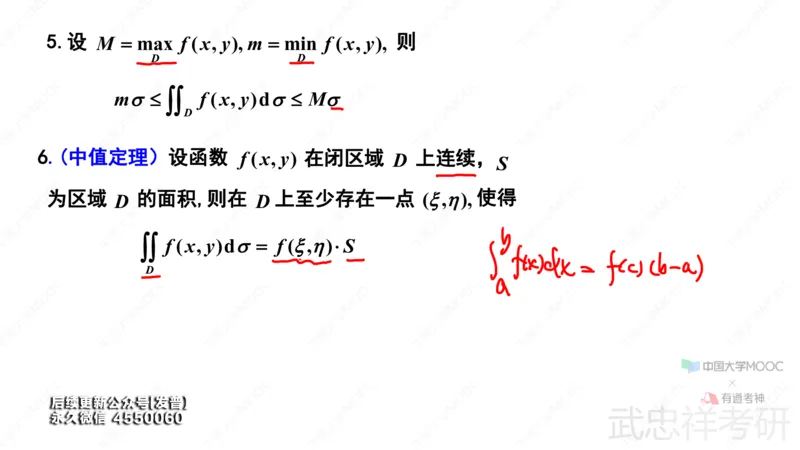 5.设 M = max f(x, y), m = min f(x, y), 则
D D
mσ ≤ ∬_D f(x, y)dσ ≤ Mσ
6.(中值定理) 设函数 f(x, y) 在闭区域 D 上连续, S
为区域 D 的面积,则在 D 上至少存在一点 (ξ,η), 使得
∬_D f(x, y)dσ = f(ξ,η)·S
∫_a^b f(x)dx = f(c)(b-a)
中国大学MOOC
×
有道考神
后续更新公众号[发普]
永久微信 4550060
武忠祥考研